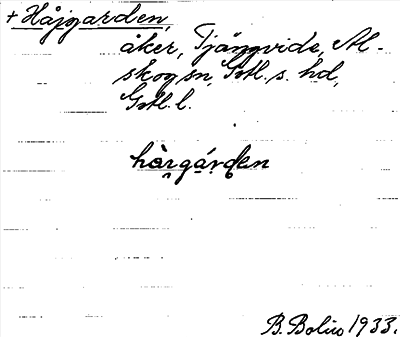 + Håjgarden,
åker, Tjängvide, Al-
skog sn, Gotl. s. hd,
Gotl. l.
hàrgá́rden
B. Bolin 1933.